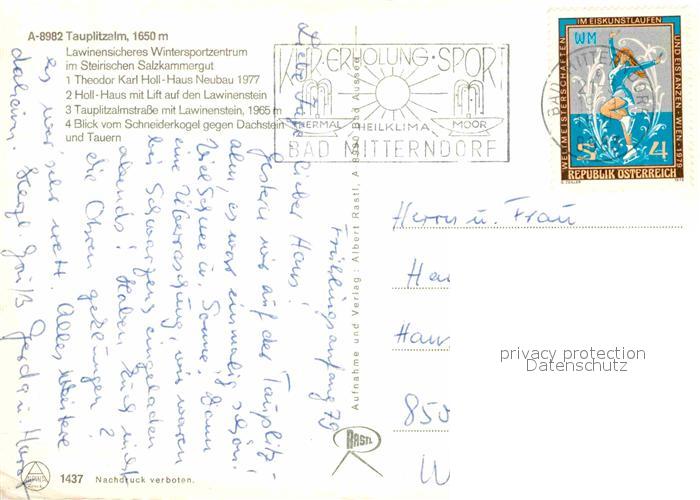 A-8982 Tauplitzalm, 1650 m
Lawinensicheres Wintersportzentrum
im Steirischen Salzkammergut
1 Theodor Karl Holl-Haus Neubau 1977
2 Holl-Haus mit Lift auf den Lawinenstein
3 Tauplitzalmstraße mit Lawinenstein, 1965 m
4 Blick vom Schneiderkogel gegen Dachstein
und Tauern
KUR·ERHOLUNG·SPORT
THERMAL HEILKLIMA MOOR
BAD MITTERNDORF
WELTMEISTERSCHAFTEN IM EISKUNSTLAUFEN UND EISTANZEN·WIEN·1979
WM
S 4
REPUBLIK ÖSTERREICH
BAD MITTERNDORF
Frühlingsanfang 79
Liebe Lieber Hans!
Gestern wir auf der Tauplitz-
alm, es war einmalig schön.
Viel Schnee u. Sonne! Dann
eine Überraschung, wir waren
bei Schwarzens eingeladen
abends! Haben Euch nicht
die Ohren geklungen?
Es war sehr nett. Alles Weitere
daheim. Herzl. Grüß Gerda u. Hans
Aufnahme und Verlag: Albert Rastl, A-8990 Bad Aussee
Herrn u. Frau
Ha
Hans
850
privacy protection
Datenschutz
RASTL
1437 Nachdruck verboten.